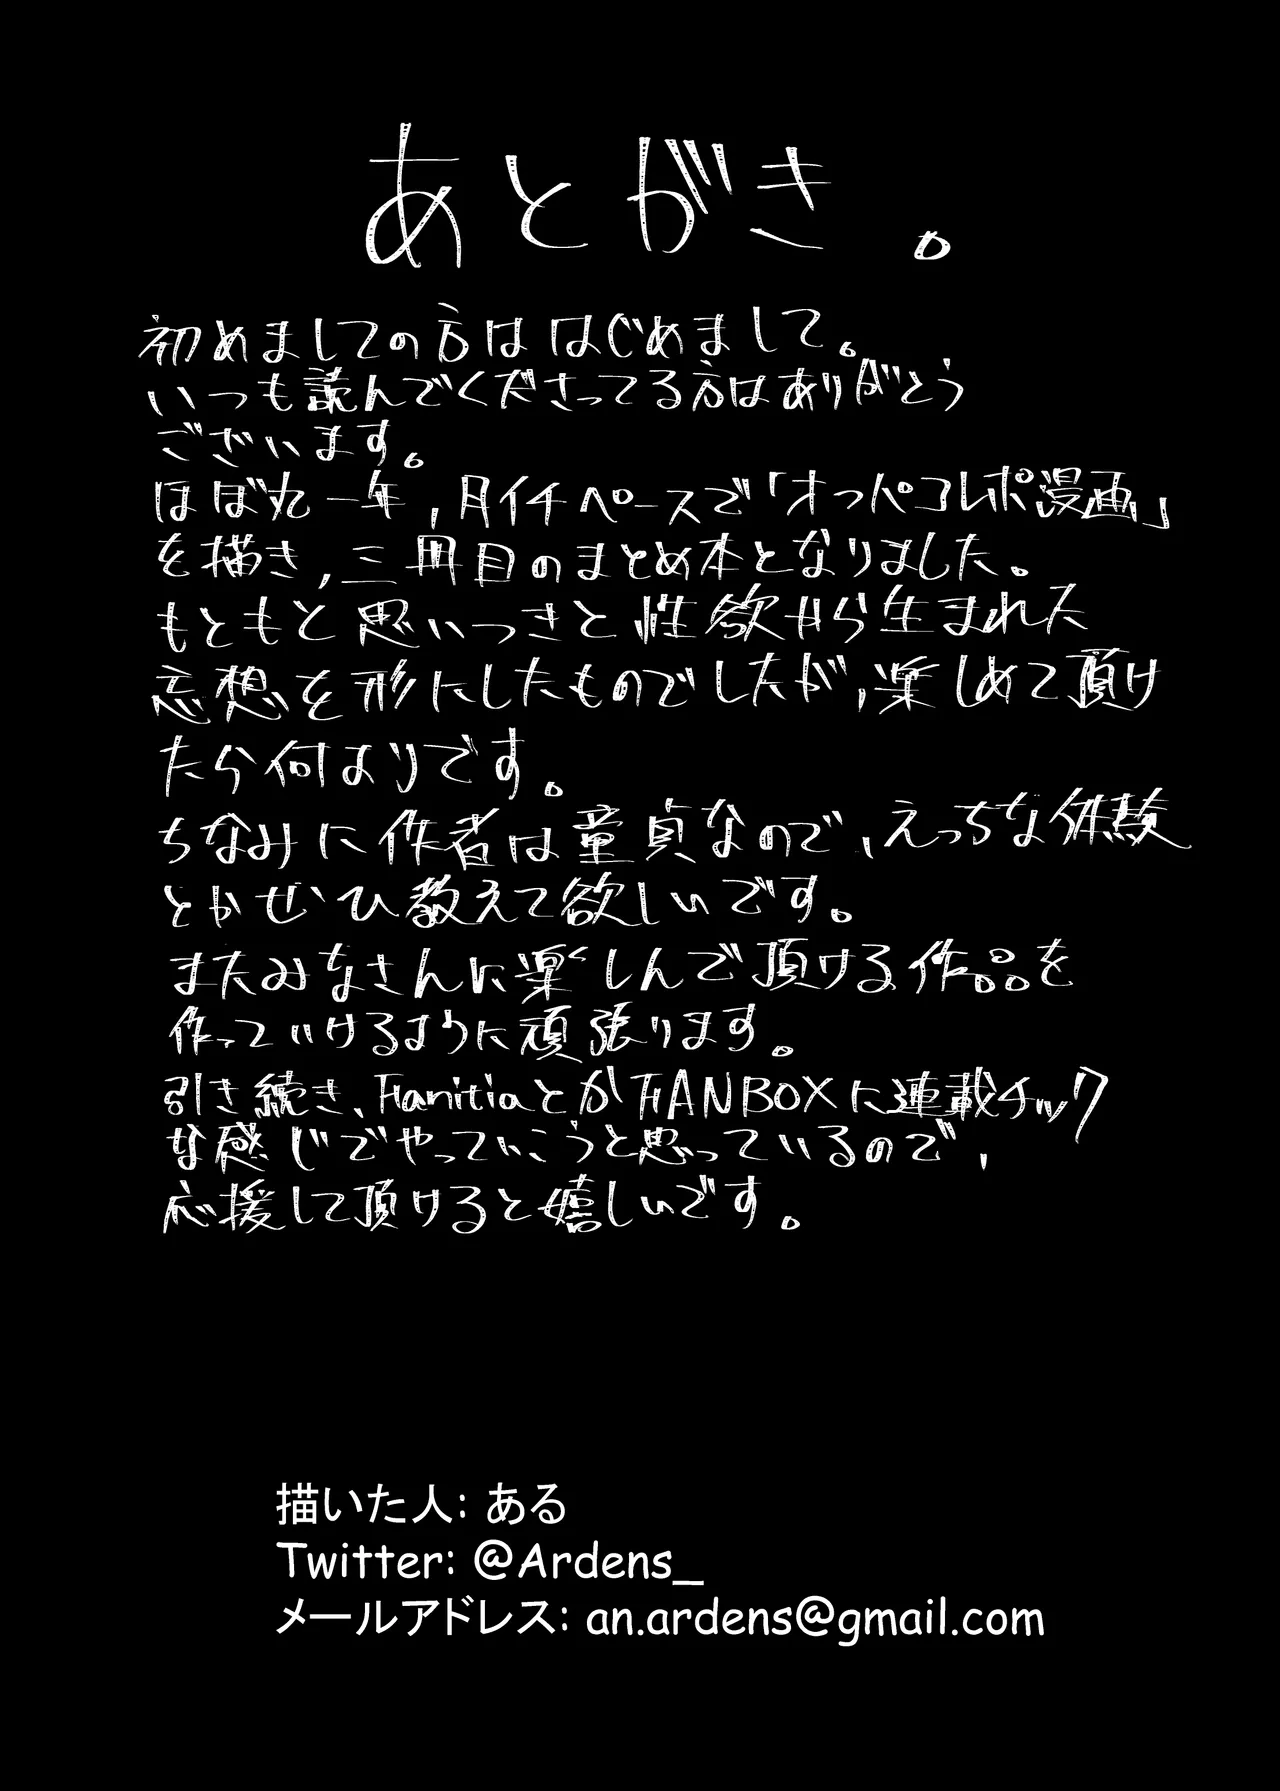 あとがき。
初めましての方ははじめまして。
いつも読んでくださってる方はありがとう
ございます。
ほぼ丸一年，月イチペースで「オッパコレポ漫画」
を描き，三冊目のまとめ本となりました。
もともと思いつきと性欲から生まれた
妄想を形にしたものでしたが，楽しめて頂け
たら何よりです。
ちなみに作者は童貞なので、えっちな体験
とかぜひ教えて欲しいです。
またみなさんに楽しんで頂ける作品を
作っていけるように頑張ります。
引き続き、FanitiaとかFANBOXに連載チック
な感じでやっていこうと思っているので，
応援して頂けると嬉しいです。
描いた人: ある
Twitter: @Ardens_
メールアドレス: an.ardens@gmail.com